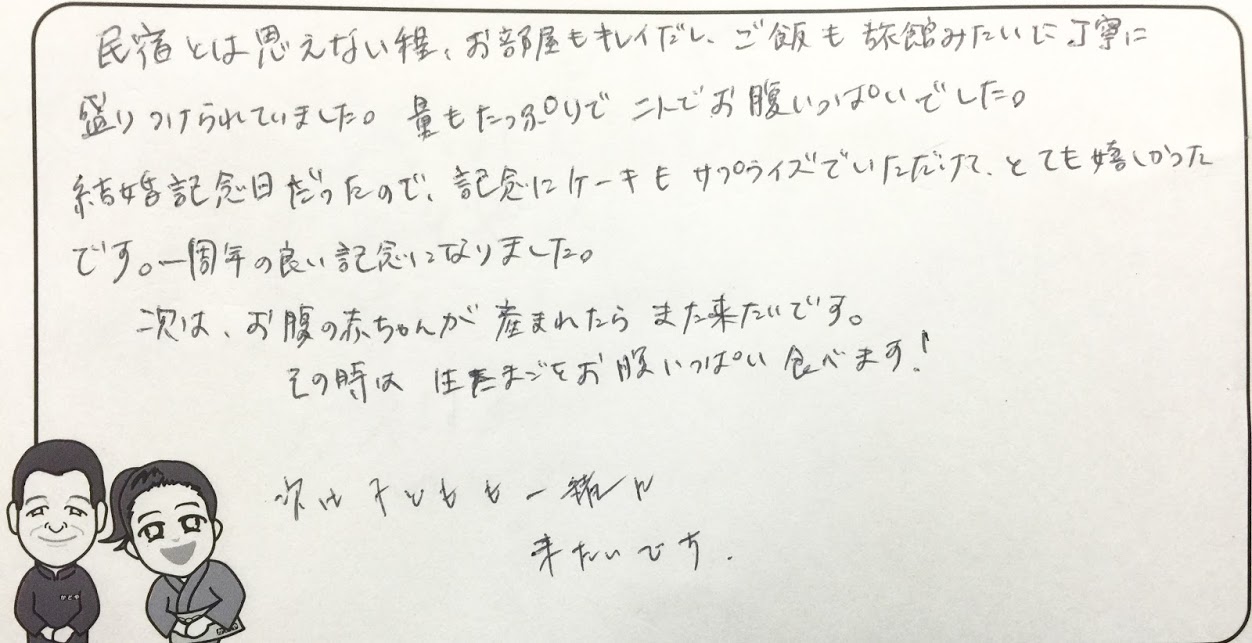 民宿とは思えない程、お部屋もキレイだし、ご飯も旅館みたいに丁寧に
盛りつけられていました。量もたっぷりで二人でお腹いっぱいでした。
結婚記念日だったので、記念にケーキもサプライズでいただけて、とても嬉しかった
です。一周年の良い記念になりました。
次は、お腹の赤ちゃんが産まれたらまた来たいです。
その時は生たまごをお腹いっぱい食べます!
次は子どもも一緒に
来たいです.
かどや